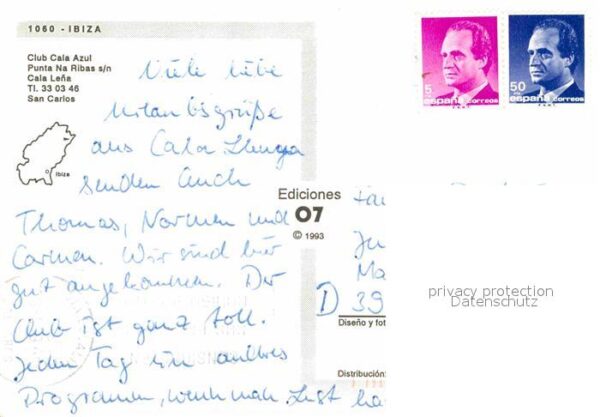 1060 - IBIZA
Club Cala Azul
Punta Na Ribas s/n
Cala Leña
Tl. 33 03 46
San Carlos
Ibiza
Viele liebe
Urlaubsgrüße
aus Cala Llenya
senden Euch
Thomas, Normen und
Carmen. Wir sind hier
gut angekommen. Der
Club ist ganz toll.
Jeden Tag ein anderes
Programm, wenn man Lust ha
5
españa correos
50
españa correos
Ediciones
07
© 1993
Fa
D 39
Diseño y fot
Distribución:
privacy protection
Datenschutz